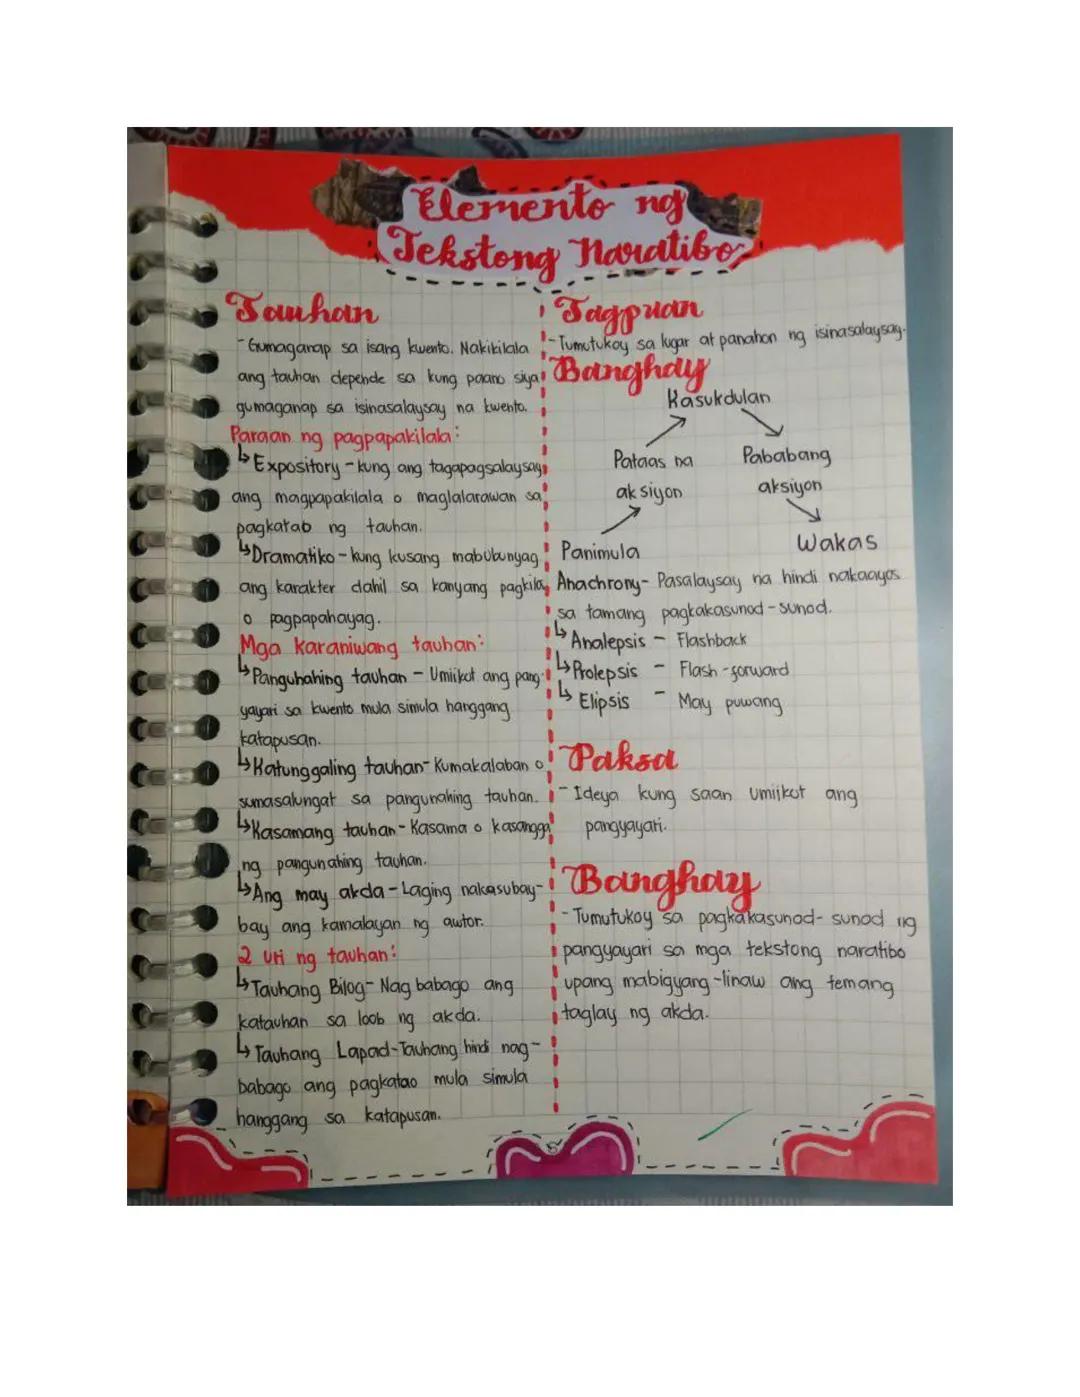 Elemento ng
Tekstong Naratibo
Tauhan
-Gumaganap sa isang kwento. Nakikilala
ang tauhan depende sa kung paano siya
gumaganap sa isinasalaysay na kwento.
Paraan ng pagpapakilala:
↳Expository - kung ang tagapagsalaysay
ang magpapakilala o maglalarawan sa
pagkatao ng tauhan.
↳Dramatiko - kung kusang mabubunyag
ang karakter dahil sa kanyang pagkilos
o pagpapahayag.
Mga karaniwang tauhan:
↳Pangunahing tauhan - Umiikot ang pang-
yayari sa kwento mula simula hanggang
katapusan.
↳Katunggaling tauhan- Kumakalaban o
sumasalungat sa pangunahing tauhan.
↳Kasamang tauhan - Kasama o kasangga
ng pangunahing tauhan.
↳Ang may akda - Laging nakasubay-
bay ang kamalayan ng awtor.
2 uri ng tauhan:
↳Tauhang Bilog- Nag babago ang
katauhan sa loob ng akda.
↳Tauhang Lapad-Tauhang hindi nag-
babago ang pagkatao mula simula
hanggang sa katapusan.
Tagpuan
-Tumutukoy sa lugar at panahon ng isinasalaysay.
Banghay
Kasukdulan
Pataas na
aksiyon
Pababang
aksiyon
Panimula
Wakas
Anachrony- Pasalaysay na hindi nakaayos
sa tamang pagkakasunod-sunod.
↳Analepsis - Flashback
↳Prolepsis - Flash-forward
↳Elipsis - May puwang
Paksa
- Ideya kung saan umiikot ang
pangyayari.
Banghay
- Tumutukoy sa pagkakasunod-sunod ng
pangyayari sa mga tekstong naratibo
upang mabigyang-linaw ang temang
taglay ng akda.